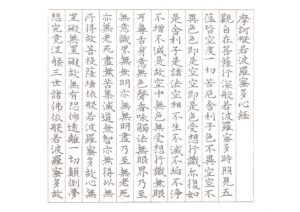 摩訶般若波羅蜜多心經
觀自在菩薩行深般若波羅蜜多時照見五
蘊皆空度一切苦厄舍利子色不異空空不
異色色即是空空即是色受想行識亦復如
是舍利子是諸法空相不生不滅不垢不淨
不增不減是故空中無色無受想行識無眼
耳鼻舌身意無色聲香味觸法無眼界乃至
無意識界無無明亦無無明盡乃至無老死
亦無老死盡無苦集滅道無智亦無得以無
所得故菩提薩埵依般若波羅蜜多故心無
罣礙無罣礙故無有恐怖遠離一切顛倒夢
想究竟涅槃三世諸佛依般若波羅蜜多故